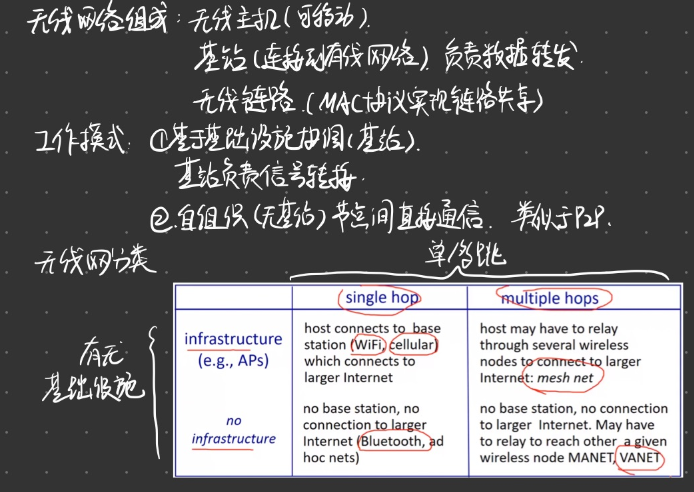 无线网络组成：无线主机(可移动).
基站(连接到有线网络) 负责数据转发.
无线链路.(MAC协议实现链路共享)
工作模式. ①基于基础设施 (基站).
基站负责信号转接.
②.自组织(无基站) 节点间直接通信. 类似于P2P.
无线网分类
单/多跳
single hop
multiple hops
有无
基础设施
infrastructure
(e.g., APs)
host connects to base
station (WiFi, cellular)
which connects to
larger Internet
host may have to relay
through several wireless
nodes to connect to larger
Internet: mesh net
no
infrastructure
no base station, no
connection to larger
Internet (Bluetooth, ad
hoc nets)
no base station, no connection
to larger Internet. May have
to relay to reach other a given
wireless node MANET, VANET